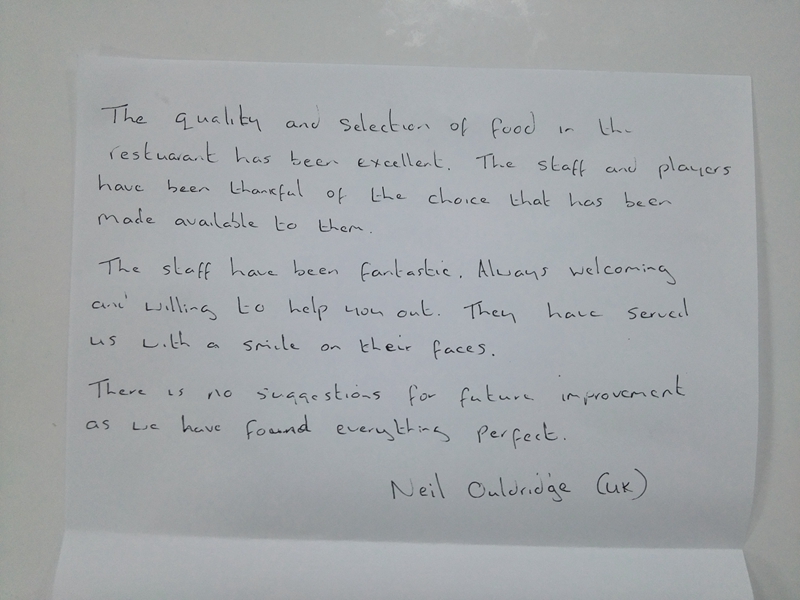 The quality and selection of food in the
restuarant has been excellent. The staff and players
have been thankful of the choice that has been
made available to them.
The staff have been fantastic. Always welcoming
and willing to help you out. They have served
us with a smile on their faces.
There is no suggestions for future improvement
as we have found everything perfect.
Neil Ouldridge (UK)